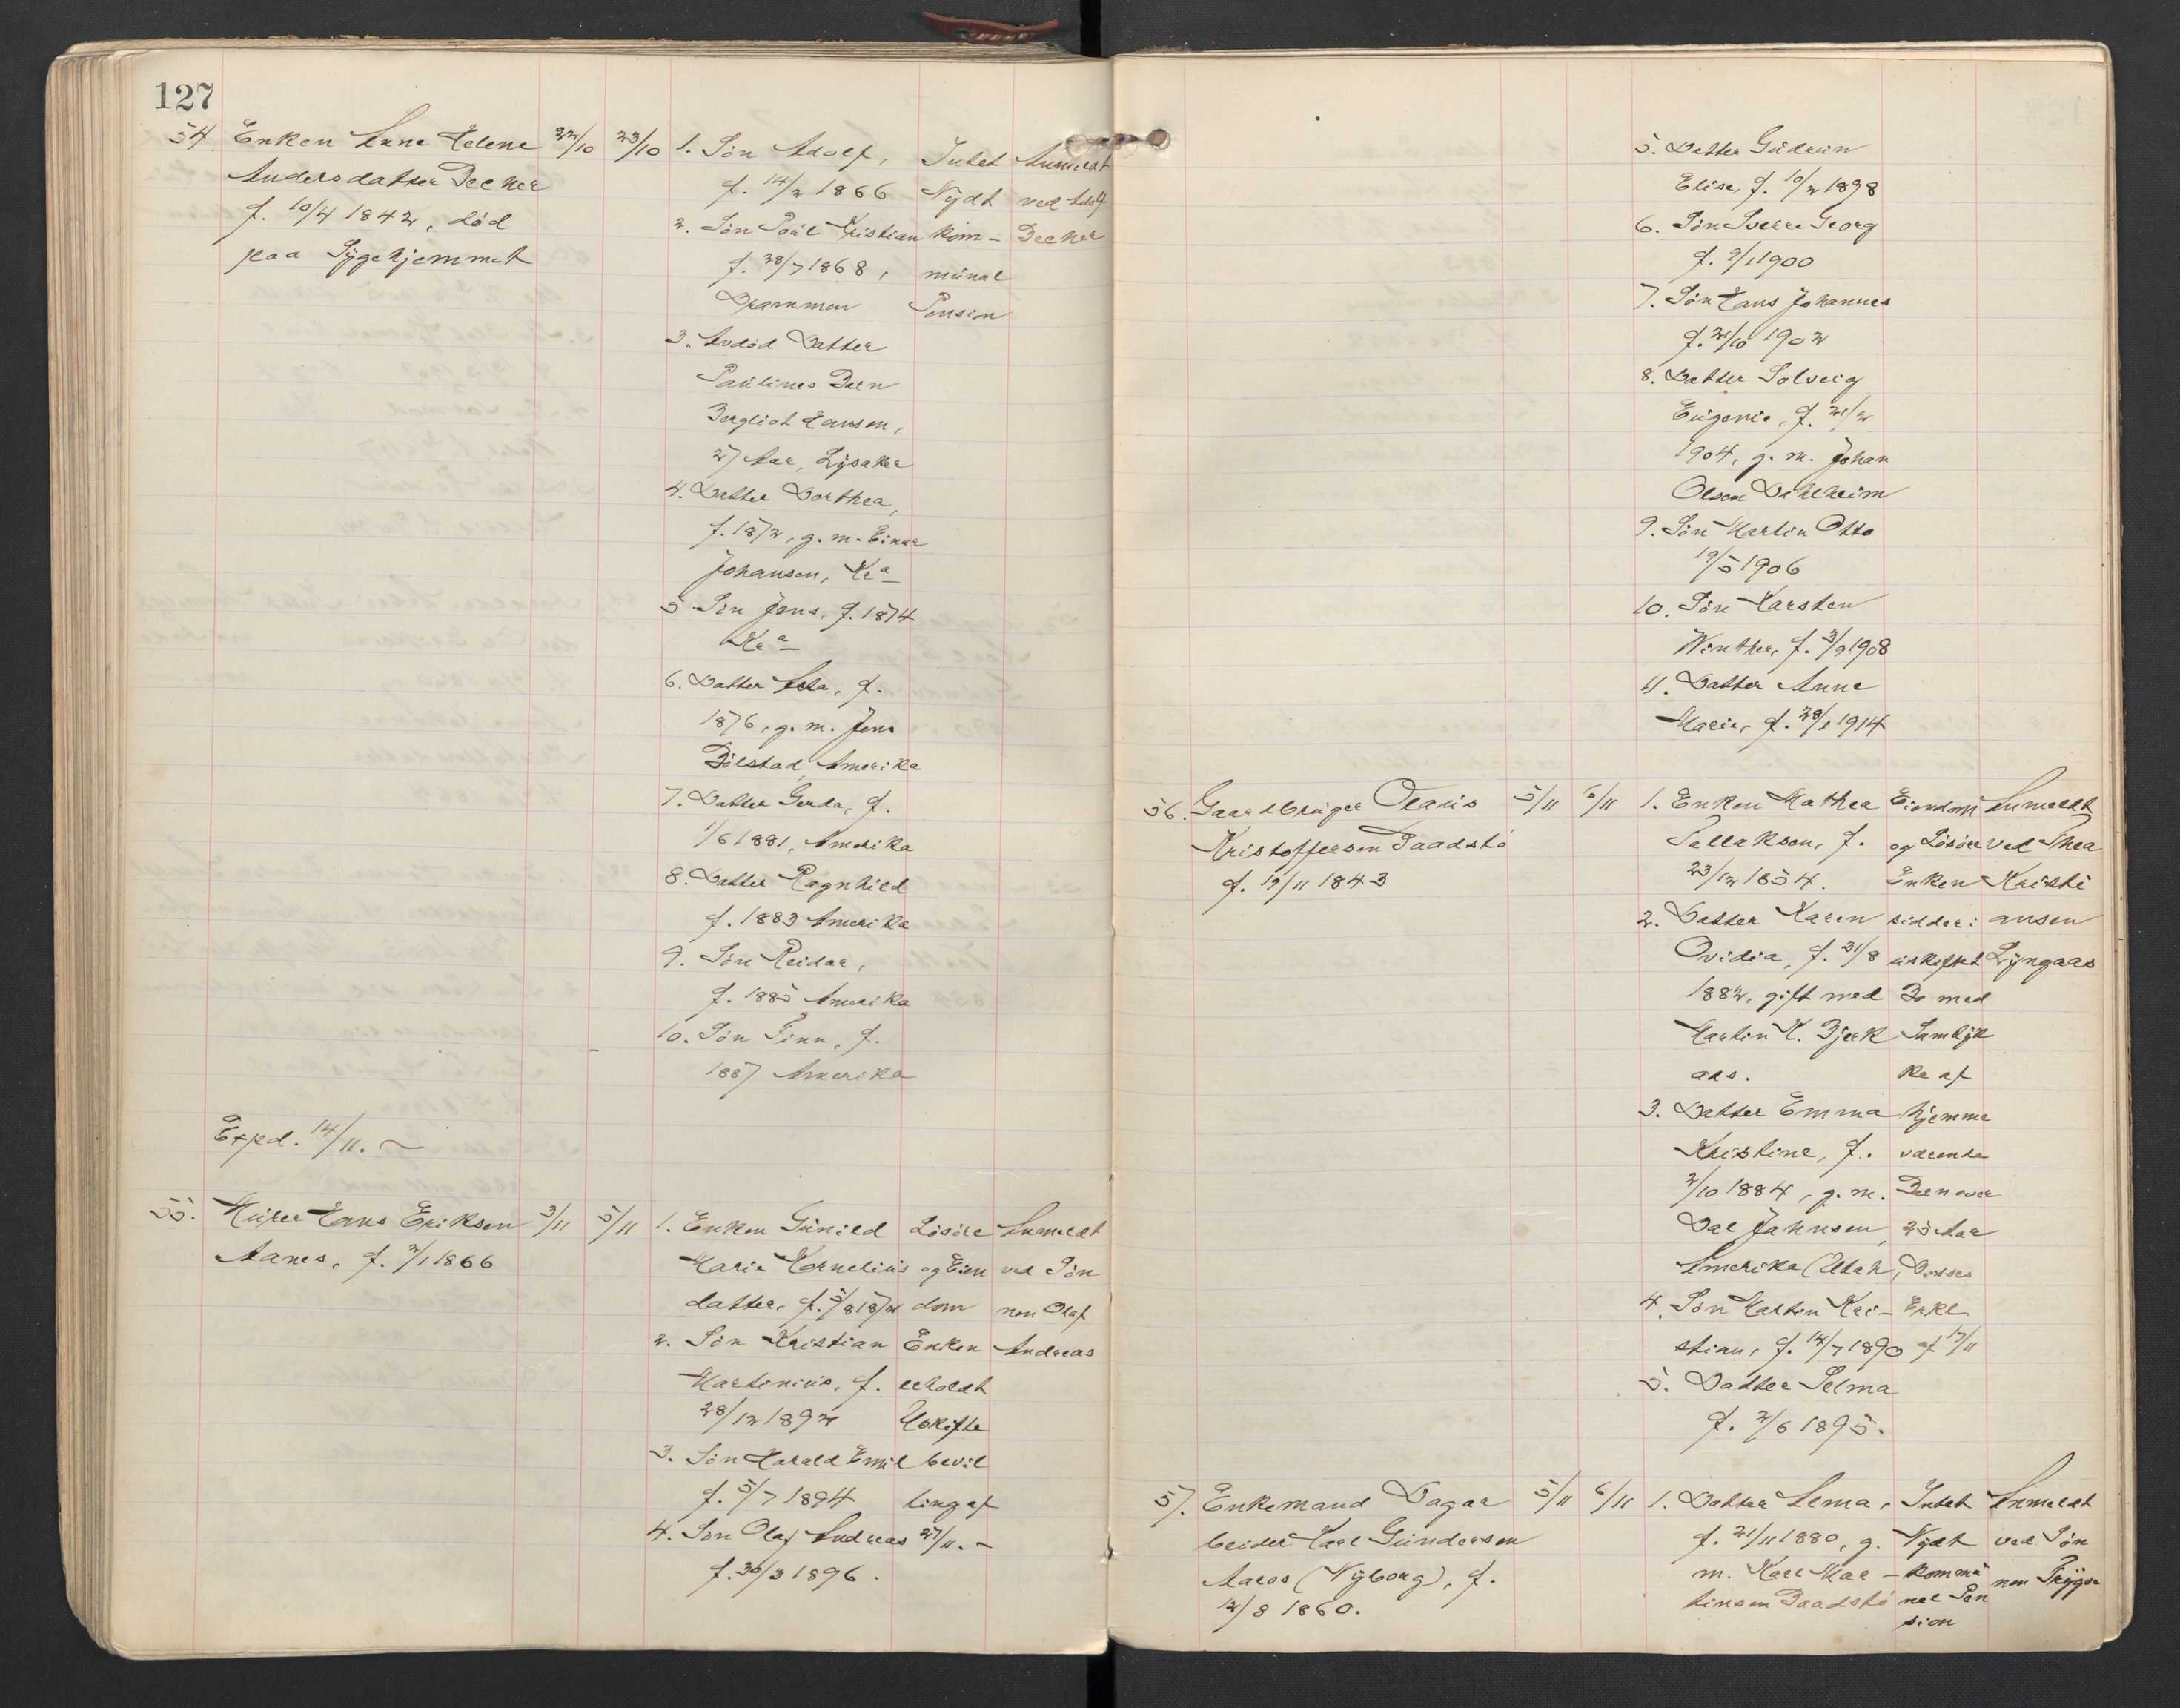 127
54. Enken Anne Helene 22/10 23/10
Andersdatter Becker
f. 10/4 1842, död
paa Sygehjemmet
1. Sön Adolf,
f. 14/2 1866
2. Sön Paul Kristian
f. 28/7 1868,
Drammen
3. Avdöd Datter
Paulines Barn
Bergliot Hansen,
27 Aar, Lysaker
4. Datter Dorthea,
f. 1872, g. m. Einar
Johansen, Kra
5. Sön Jens, f. 1874
Kra
6. Datter , f.
1876, g. m. Jens
Bölstad, Amerika
7. Datter Gerda, f.
1/6 1881, Amerika
8. Datter Ragnhild
f. 1883 Amerika
9. Sön Reidar,
f. 1885 Amerika
10. Sön Finn, f.
1887 Amerika
Intet
Nydt
kom-
munal
Pension
Anmeldt
ved Adolf
Becker
Expd. 14/11.
55. Murer Hans Eriksen 3/11 5/11
Aanes, f. 2/1 1866
1. Enken Gunild
Marie Kornelius
datter, f. 5/8 1872
2. Sön Kristian
Martinius, f.
28/12 1892
3. Sön Harald Emil
f. 5/7 1894
4. Sön Olaf Andreas
f. 30/3 1896.
Lösöre
og Eien
dom
Enken
erholdt
Uskifte
bevil
ling af
27/11.
Anmeldt
ved Sön
nen Olaf
Andreas
5. Datter Gudrun
Elise, f. 10/2 1898
6. Sön Sverre Georg
f. 9/1 1900
7. Sön Hans Johannes
f. 21/10 1902
8. Datter Solveig
Eugenie, f. 21/2
1904, g. m. Johan
Olsen Dahlheim
9. Sön Martin Otto
19/5 1906
10. Sön Karsten
Winther, f. 3/9 1908
11. Datter Anne
Marie, f. 28/1 1914
56. Gaardbruger Olaus 5/11 6/11
Kristoffersen Baadstö
f. 19/11 1843
1. Enken Mathea
Tallaksen, f.
23/12 1854.
2. Datter Karen
Ovidia, f. 31/8
1882, gift med
Martin K. Bjerk
aas.
3. Datter Emma
Kristine, f.
2/10 1884, g. m.
Dal Jahnsen,
Amerika (Utah,
4. Sön Martin Kri-
stian, f. 14/7 1890
5. Datter Selma
f. 2/6 1895.
Eiendom
og Lösöre
Enken
sidder i
uskiftet
Bo med
Samtyk
ke af
hjemme
værende
Börn over
25 Aar
Enkl.
af 17/11
Anmeldt
ved Thea
Kristi
ansen
Lyngaas
57. Enkemand Dagar 5/11 6/11
beider Karl Gundersen
Aaros (Nyborg), f.
12/8 1860.
1. Datter Alma,
f. 21/11 1880, g.
m. Karl Mar-
tinsen Baadstö
Intet
Nydt
kommu
nal Pen
sion
Anmeldt
ved Sön
nen Trygve